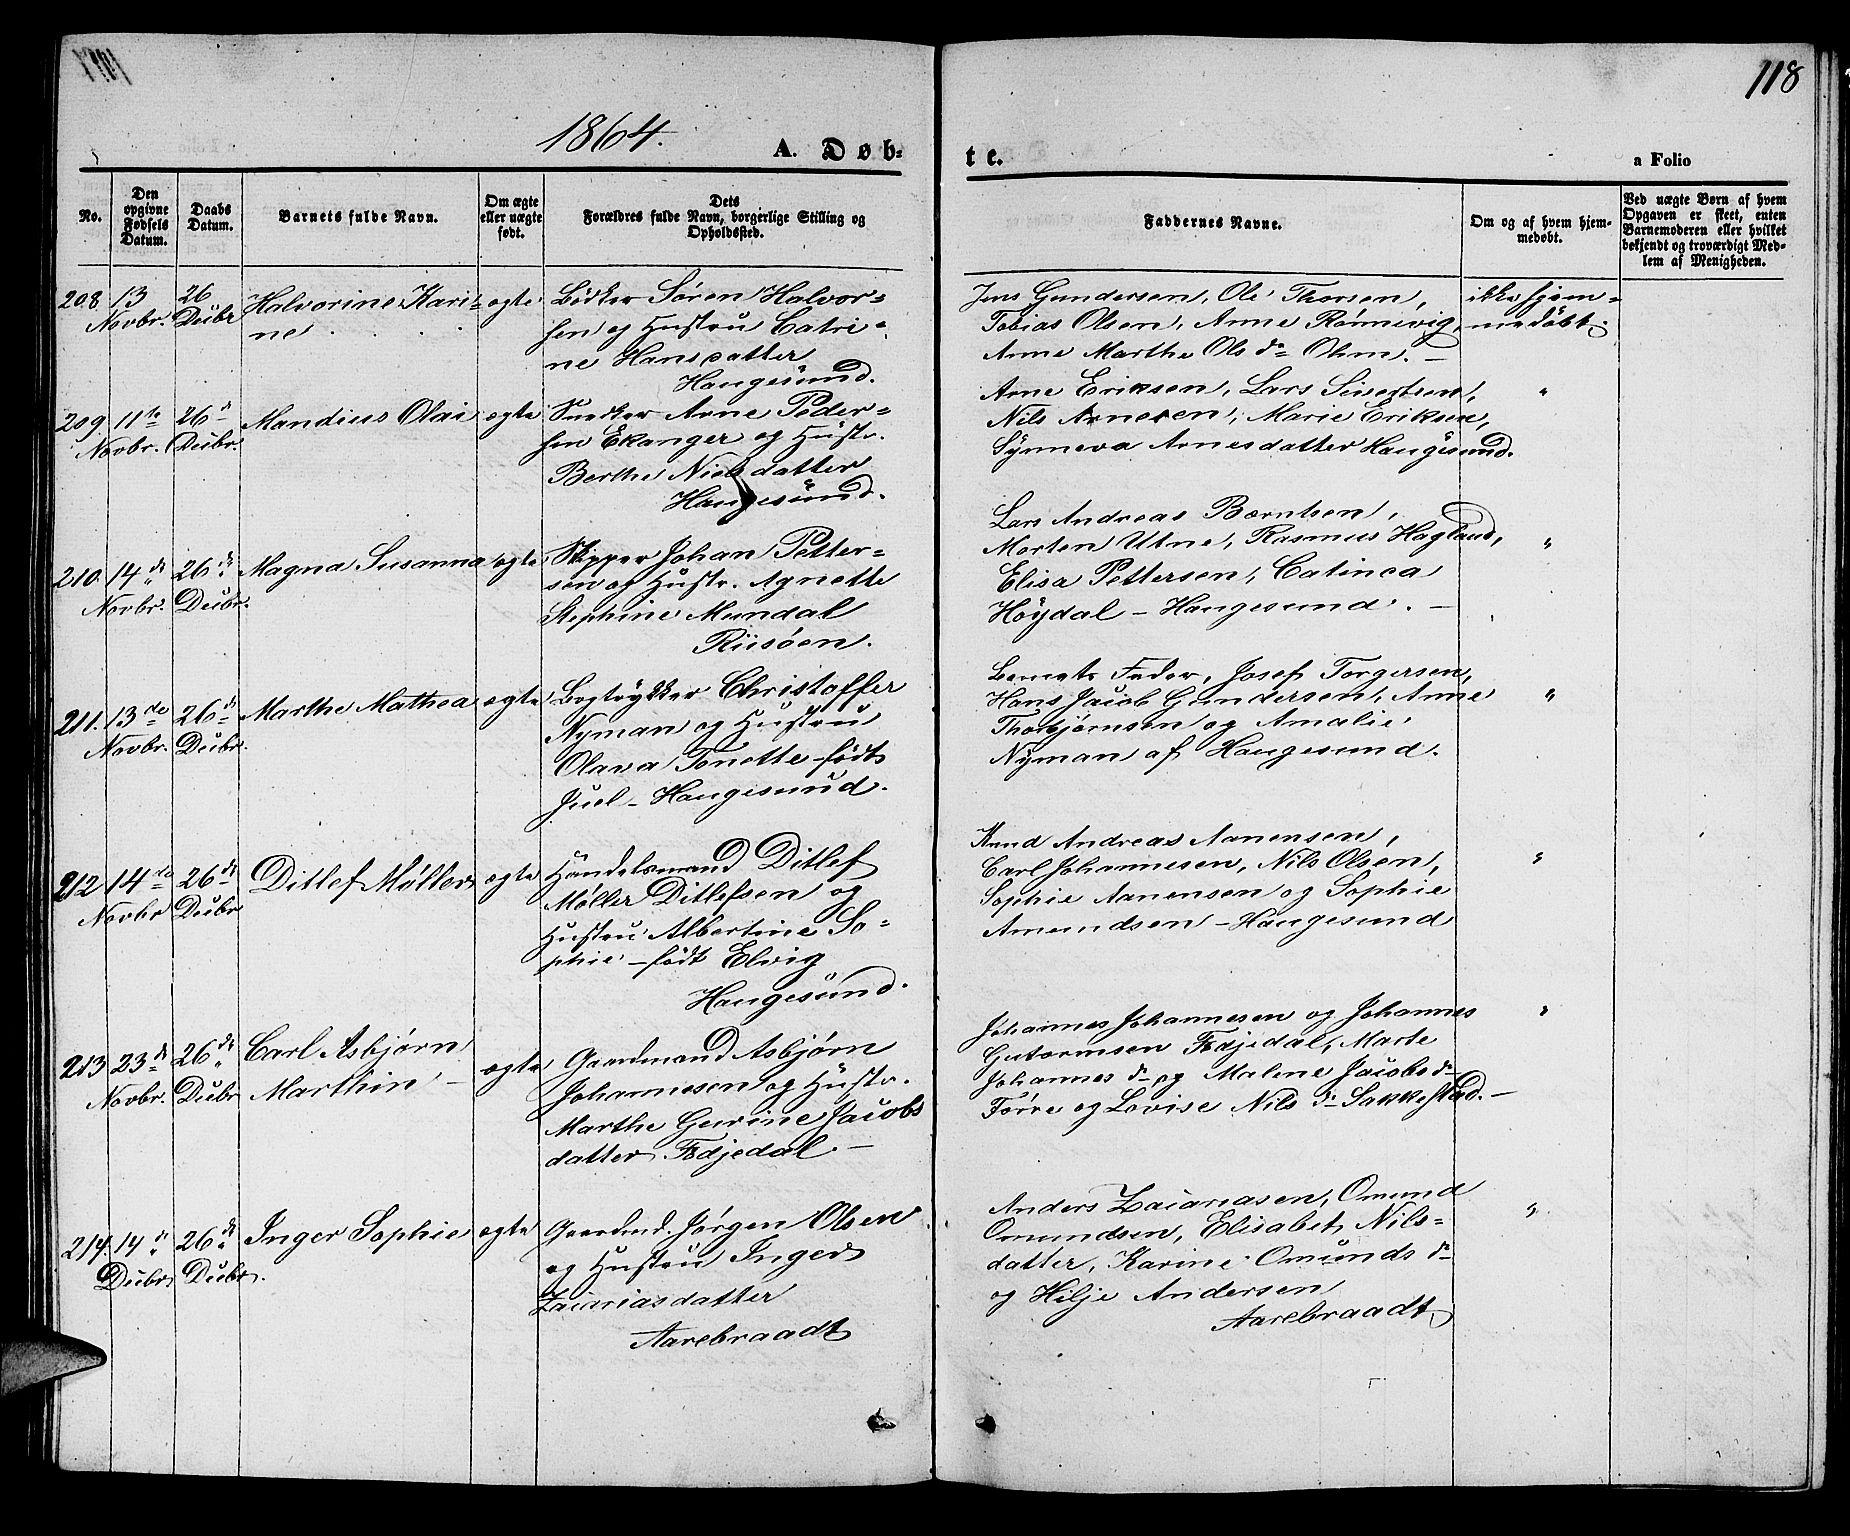 118
1864.
A. Døb=
te.
a Folio
No.
Den opgivne Fødsels Datum.
Daabs Datum.
Barnets fulde Navn.
Om ægte eller uægte født.
Dets Forældres fulde Navn, borgerlige Stilling og Opholdssted.
Faddernes Navne.
Om og af hvem hjemmedøbt.
Ved uægte Børn af hvem Opgaven er skeet, enten Barnemoderen eller hvilket bekjendt og troværdigt Medlem af Menigheden.
208. 13 Novbr. 26 Decbr Halvorine Kari=
ne
ægte
Bødker Søren Halvor=
sen og Hustru Catri=
ne Hansdatter
Haugesund.
Jens Gundersen, Ole Thorsen,
Tobias Olsen, Anne Rönnevig,
Anne Marthe Olsdr Ohm. –
ikke hjem=
medöbt.
209. 11te Novbr. 26d Decbr. Mandius Olai
ægte
Snedker Arne Peder=
sen Ekanger og Hustr.
Berthe Nielsdatter
Haugesund.
Arne Eriksen, Lars Sivertsen,
Nils Arnesen, Marie Eriksen,
Synneva Arnesdatter Haugesund.
"
210. 14de Novbr. 26de Decbr. Magna Susanna
ægte
Skipper Johan Petter=
sen og Hustr. Agnette
Stephine Mundal
Riisøen.
Lars Andreas Berntsen,
Morten Utne, Rasmus Hagland,
Elisa Pettersen, Catinca
Höydal – Haugesund. –
"
211. 13de Novbr. 26de Decbr. Marthe Mathea
ægte
Bogtrykker Christoffer
Nyman og Hustru
Olava Tonette født
Juel – Haugesund.
Barnets Fader, Josef Torgersen,
Hans Jacob Gundersen, Anne
Thorbjørnsen og Amalie
Nyman af Haugesund.
"
212 14de Novbr 26de Decbr Ditlef Møller
ægte
Handelsmand Ditlef
Møller Ditlefsen og
Hustru Albertine So=
phie – født Elvig
Haugesund.
Knud Andreas Aanensen,
Carl Johannesen, Nils Olsen,
Sophie Aanensen og Sophie
Amundsen – Haugesund
"
213 23de Novbr. 26de Decbr Carl Asbjørn
Marthin –
ægte
Gaardmand Asbjørn
Johannesen og Hustr.
Marthe Gurine Jacobs
datter Fødjedal. –
Johannes Johannesen og Johannes
Gutormsen Fødjedal, Marte
Johannes dr og Malene Jacobsdr
Førre og Lovise Nilsdr Sakkestad. –
"
214. 14de Decbr 26de Decbr. Inger Sophie
ægte
Gaardmd. Jørgen Olsen
og Hustru Inger
Zacariasdatter
Aarebraadt
Anders Zacariasen, Omund
Omundsen, Elisabet Nils=
datter, Karine Omundsdr
og Hilje Andersen
Aarebraadt
"